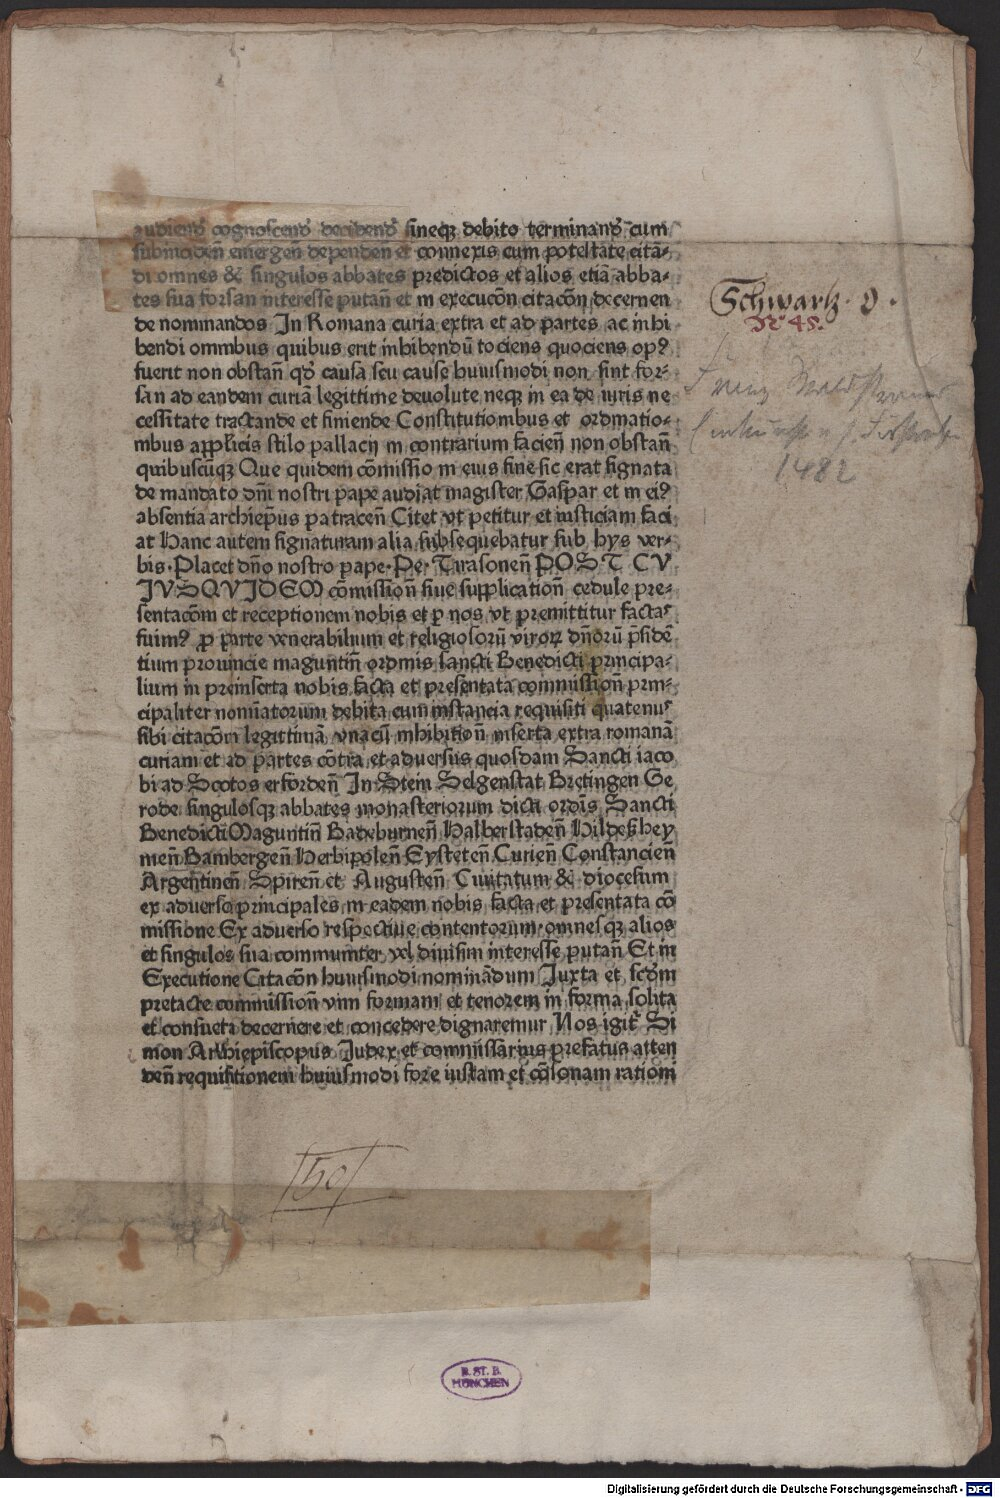 audiend̛ cognoscend̛ decidend̛ fineqꝫ debito terminand̛ cum
subinciden̄ emergen̄ dependen̄ et connexis cum potestate citā-
di omnes & singulos abbates predictos et alios etiā abba-
tes sua forsan interesse putan̄ et in execucōn citacōn decernen
de nominandos In Romana curia extra et ad partes ac inhi
bendi omnibus quibus erit inhibendū tociens quociens opꝰ
fuerit non obstan̄ qd̛ causa seu cause huiusmodi non sint for-
san ad eandem curiā legittime deuolute neqꝫ in ea de iuris ne
cessitate tractande et finiende Constitutionibus et ordinatio-
nibus applicis stilo pallacij in contrarium facien̄ non obstan̄
quibuscūqꝫ Que quidem cōmissio in eius fine sic erat signata
de mandato dn̄i nostri pape audiat magister Gaspar et in eiꝰ
absentia archiep̄us patracen̄ Citet vt petitur et iusticiam faci
at Hanc autem signaturam alia subsequebatur sub hys ver-
bis · Placet dn̄o nostro pape · Pe · Tirasonen̄ POST CV
IVSQVIDEM cōmission̄ siue supplication̄ cedule pre-
sentacōm et receptionem nobis et p nos vt premittitur factas
fuimꝰ p parte venerabilium et religiosorū viroꝝ dn̄orū p̄sidē
tium prouincie maguntin̄ ordinis sancti Benedicti principa-
lium in preinserta nobis facta et presentata commission̄ prin-
cipaliter noīnatorum debita cum instancia requisiti quatenus
sibi citacōm legittimā vnacū inhibition̄ inserta extra romanā
curiam et ad partes cōtra et aduersus quosdam Sancti iaco
bi ad Scotos erforden̄ In Stein Selgenstat Bretingen Ge
rode singulosqꝫ abbates monasteriorum dicti ordīs Sancti
Benedicti Maguntin̄ Badeburnen̄ Halberstaden̄ Hildeßhey
men̄ Bambergen̄ Herbipolen̄ Eysteten̄ Curien̄ Constancien̄
Argentinen̄ Spiren̄ et Augusten̄ Ciuitatum & diocesum
ex aduerso principales in eadem nobis facta et presentata cō
missione Ex aduerso respectiue contentorum · omnesqꝫ alios
et singulos sua communiter vel diuisim interesse putan̄ Et in
Executione Citacōn huiusmodi nominādum Juxta et scd̄m
pretacte commission̄ vim formam et tenorem in forma solita
et consueta decernere et concedere dignaremur Nos igit̛ Si
mon Archiepiscopus Judex et commissarius prefatus atten
den̄ requisitionem huiusmodi fore iustam et cōsonam rationi
Schwartz. O.
No 45.
1482
B. St. B.
MÜNCHEN
Digitalisierung gefördert durch die Deutsche Forschungsgemeinschaft - DFG